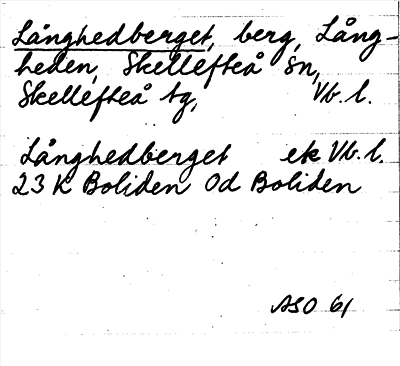 Långhedberget, berg, Lång-
heden, Skellefteå sn,
Skellefteå tg, Vb. l.
Långhedberget ek Vb. l.
23 K Boliden Od Boliden
ASO 61